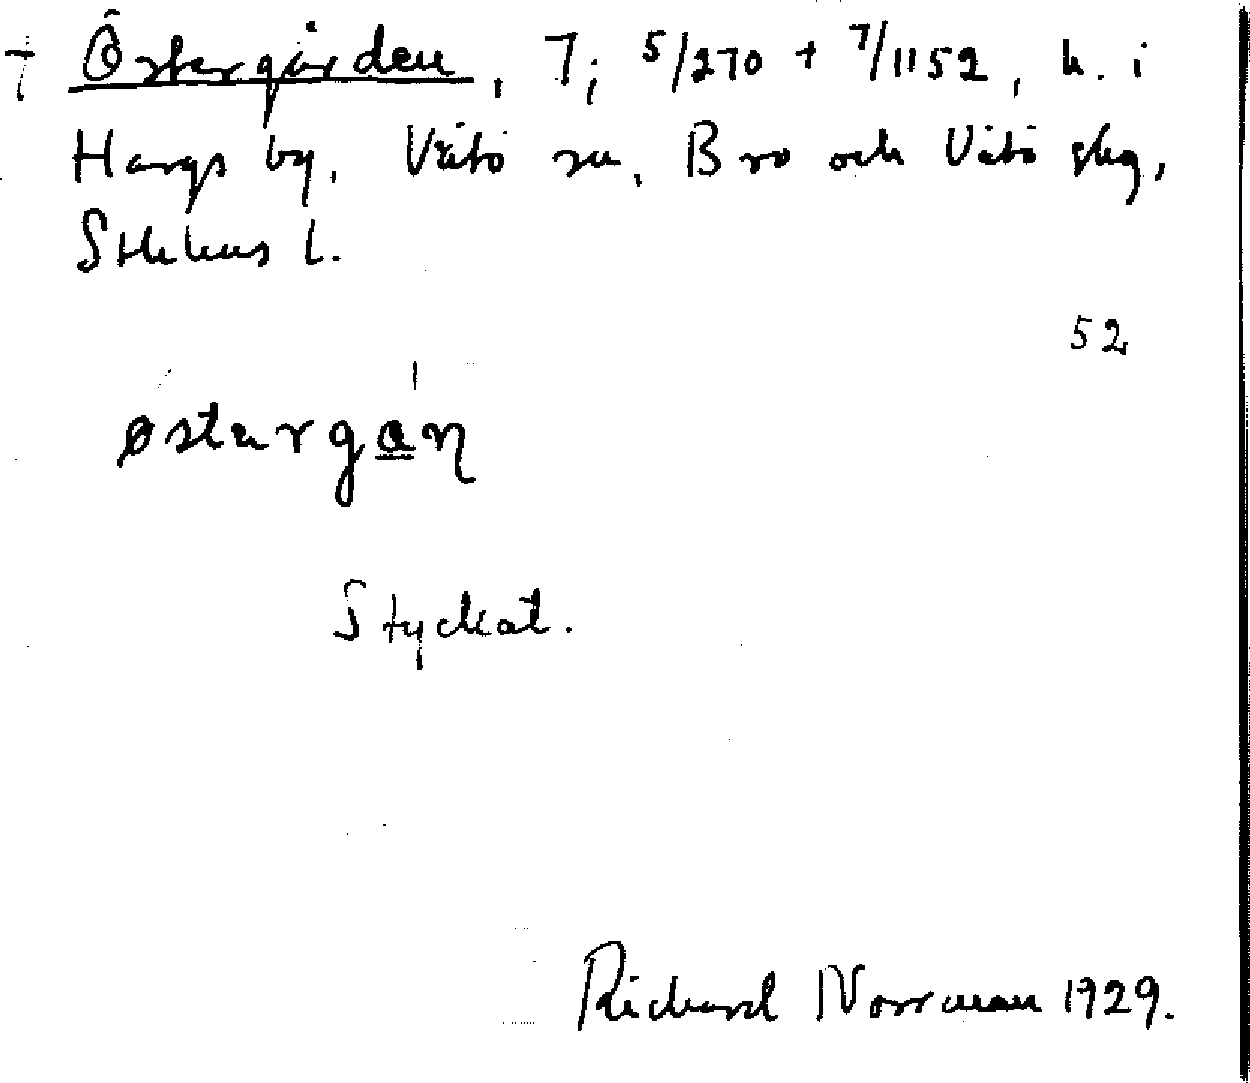 † Östergården, 7; 5/270 + 7/1152, h. i
Hargs by, Vätö sn, Bro och Vätö skg,
Sthlms l.
52
østərgɑ̲ṇ
Styckat.
Richard Norrman 1929.